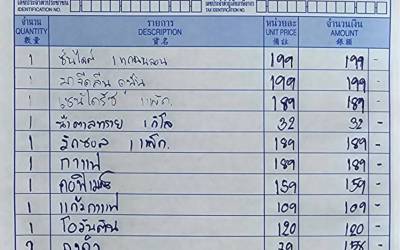 เลขประจำตัวประชาชน เลขประจำตัวผู้เสียภาษีอากร
IDENTIFICATION NO. TAX IDENTIFICATION NO.
จำนวน รายการ หน่วยละ จำนวนเงิน
QUANTITY DESCRIPTION UNIT PRICE AMOUNT
數量 貨名 備註 銀額
1 ซันไลต์ 199 199 -
1 199 199 -
1 1แพ็ก. 189 189 -
1 น้ำตาลทราย 1กิโล 32 32 -
1 1แพ็ก. 189 189 -
1 กาแฟ 189 189 -
1 คอฟฟี่เมต 159 159 -
1 แก้วกาแฟ 109 109 -
1 โอวันติน 120 120 -
2 ถุงดำ 79 158 -